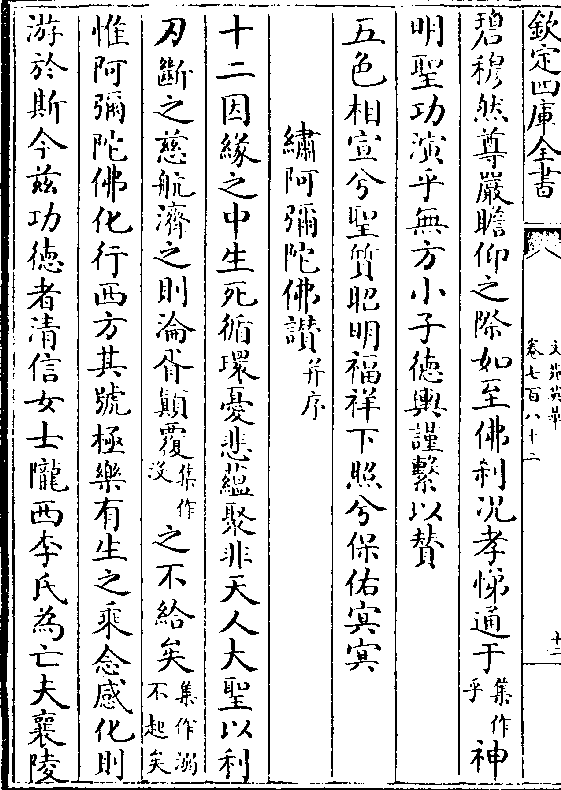 欽定四庫全書
文苑英華
卷七百八十二
十二
碧穆然尊嚴瞻仰之際如至佛刹況孝悌通于集作乎神
明聖功演乎無方小子德輿謹繫以賛
五色相宣兮聖質昭明福祥下照兮保佑冥冥
繡阿彌陀佛讃并序
十二因緣之中生死循環憂悲蘊聚非天人大聖以利
刃斷之慈航濟之則淪胥顛覆集作沒之不給矣集作溺不起矣
惟阿彌陀佛化行西方其號極樂有生之乘念感化則
游於斯今兹功德者清信女士隴西李氏為亡夫襄陵